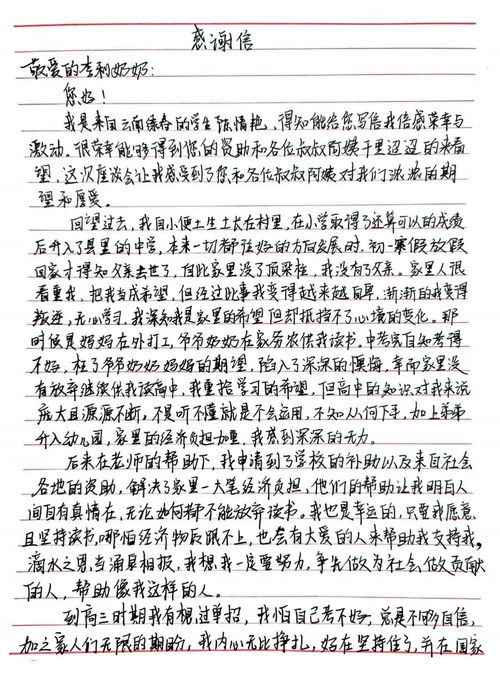 感谢信
敬爱的李利奶奶：
您好！
我是来自云南绿春的学生陈情艳，得知能给您写信我倍感荣幸与
激动。很荣幸能够得到您的资助和各位叔叔阿姨千里迢迢的来看
望，这次座谈会让我感受到了您和各位叔叔阿姨对我们浓浓的期
望和厚爱。
回望过去，我自小便土生土长在村里，在小学取得了还算可以的成绩
后升入了县里的中学，本来一切都往好的方向发展时，初一寒假放假
回家才得知父亲去世了，自此家里没了顶梁柱，我没有了父亲。家里人很
看重我，把我当成希望，但经过此事我变得越来越自卑，渐渐的我变得
叛逆，无心学习，我深知我是家里的希望但却抵挡不了心境的变化。那
时候是妈妈在外打工，爷爷奶奶在家务农供我读书。中考完自知考得
不好，枉了爷爷奶奶妈妈的期望，陷入了深深的懊悔，幸而家里没
有放弃继续供我读高中，我重拾学习的希望，但高中的知识对我来说
庞大且源源不断，不是听不懂就是不会运用，不知从何下手，加上弟弟
升入幼儿园，家里的经济负担加重，我感到深深的无力。
后来在老师的帮助下，我申请到了学校的补助以及来自社会
各地的资助，解决了家里一大笔经济负担，他们的帮助让我明白人
间自有真情在，无论如何都不能放弃读书。我也是幸运的，只要我愿意
且坚持读书，哪怕经济物反跟不上，也会有大爱的人来帮助我支持我，
滴水之恩，当涌泉相报，我想，我一定要努力，争先做为社会做贡献
的人，帮助像我这样的人。
到高三时期我有想过单招，我怕自己考不好，总是不够自信，
加之家人们无限的期盼，我内心无比挣扎，好在坚持住了，并在国家